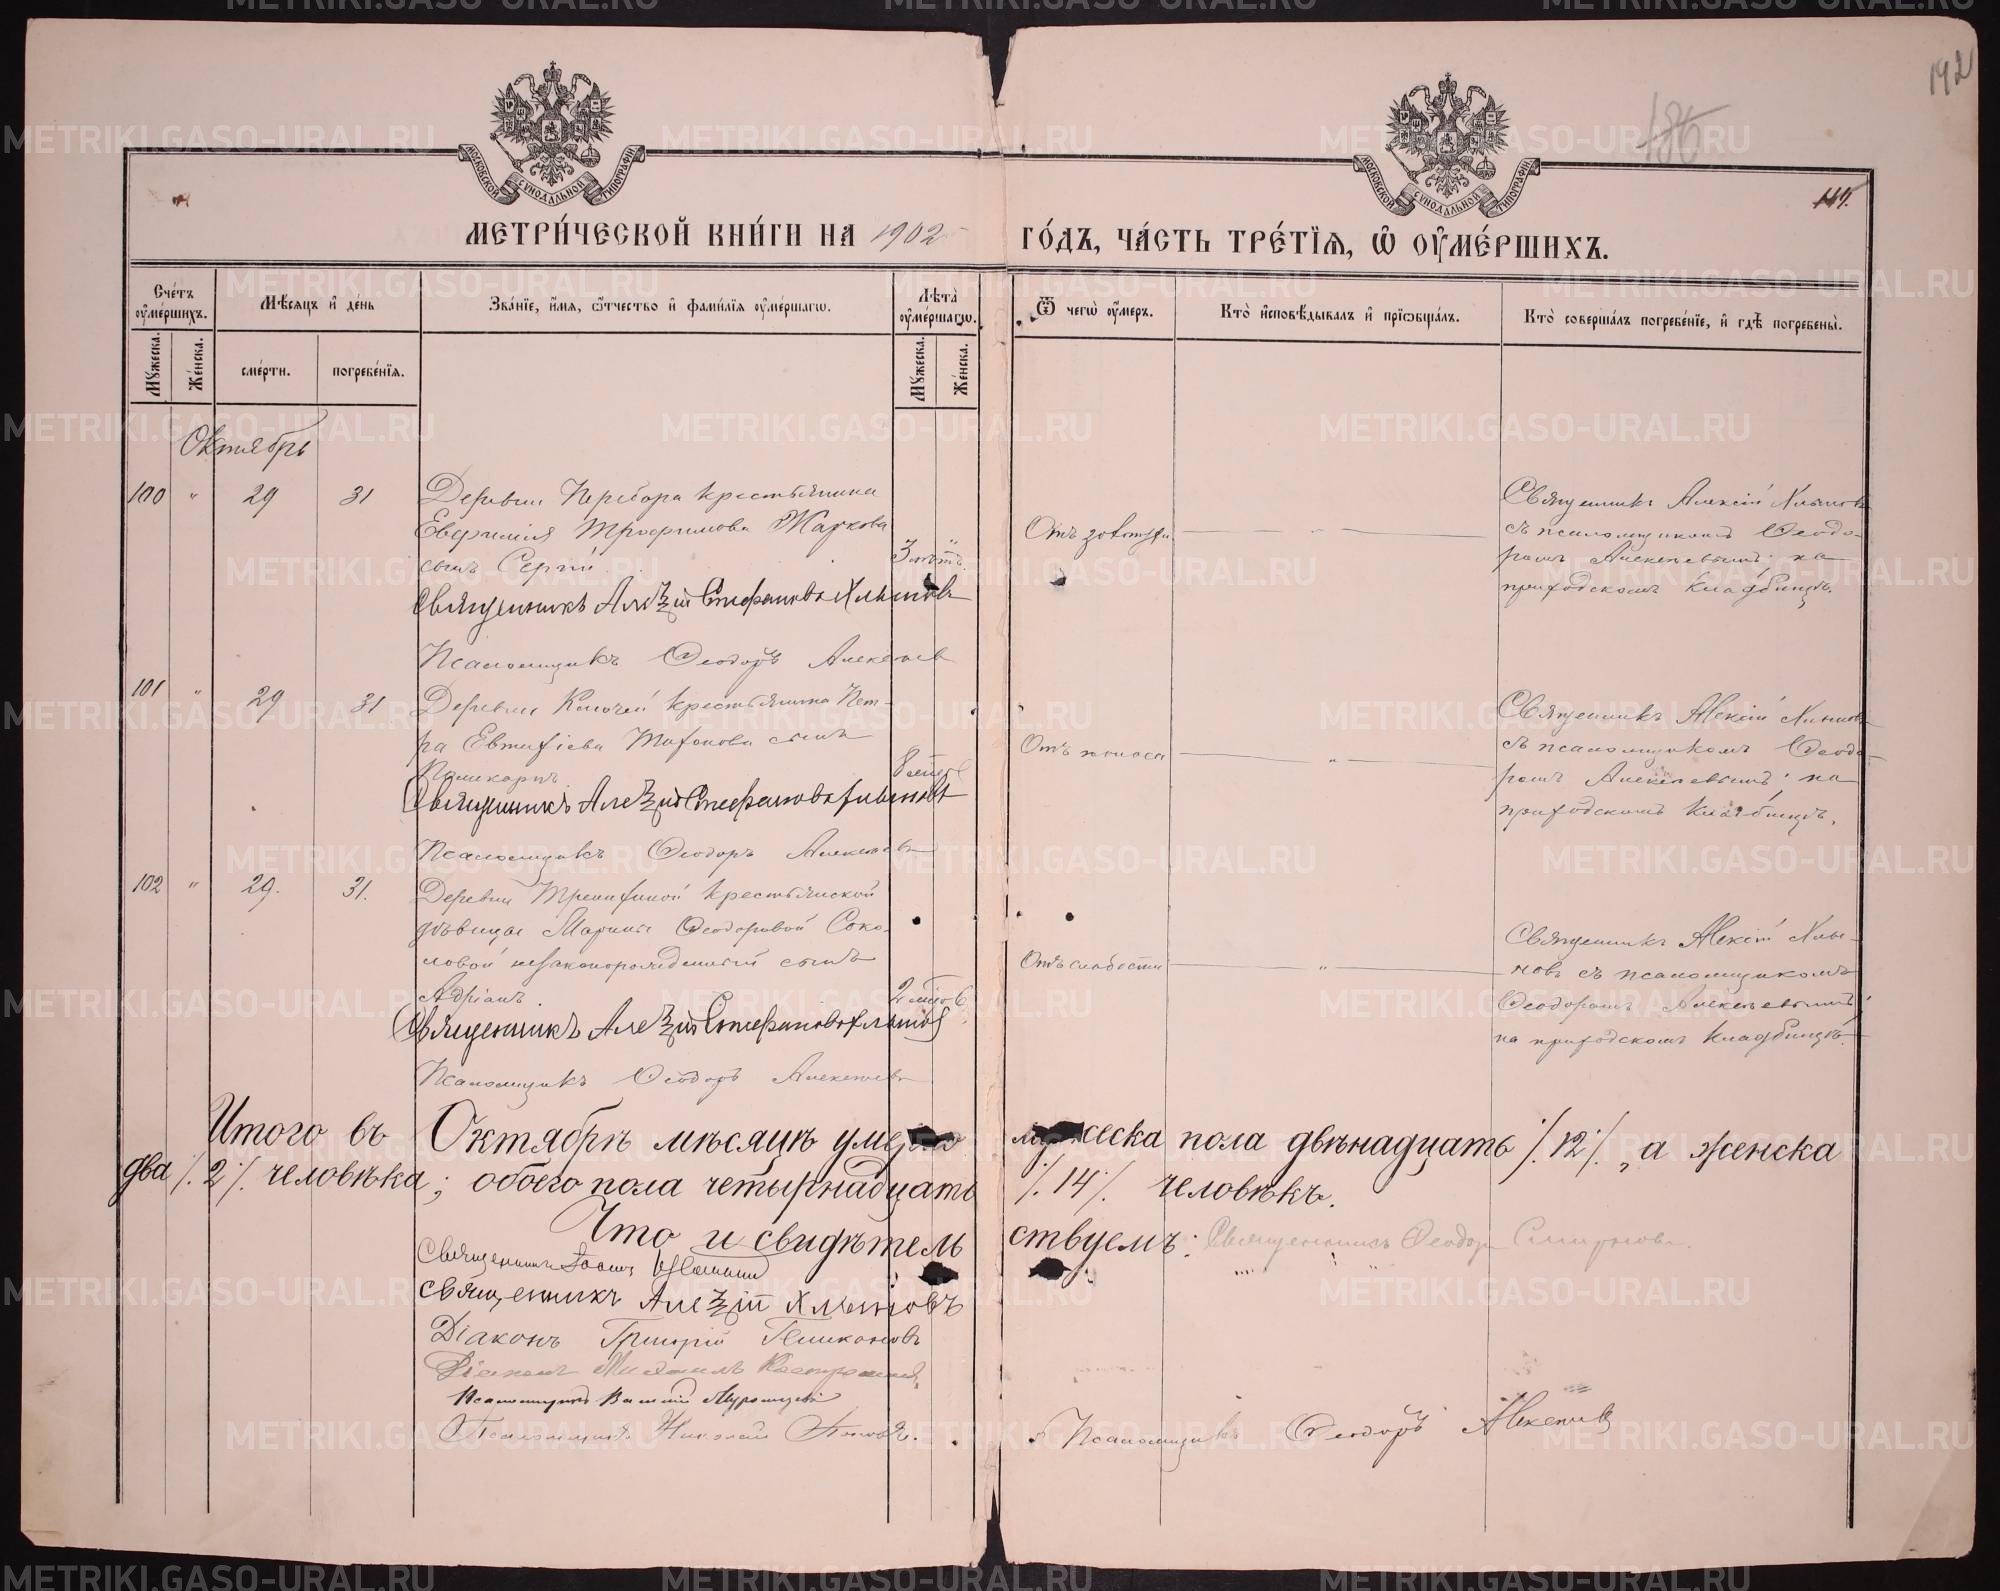 192
186
МОСКОВСКОЙ СУНОДАЛЬНОЙ ТИПОГРАФІИ
МОСКОВСКОЙ СУНОДАЛЬНОЙ ТИПОГРАФІИ
МЕТРИ́ЧЕСКОЙ КНИ́ГИ НА 1902 ГО́ДЪ, ЧА́СТЬ ТРЕ́ТЇѦ, Ѡ ОУ҆МЕ́РШИХЪ.
Сче́тъ оу҆ме́ршихъ.
Мꙋ́жеска.
Же́нска.
Мѣ́сяцъ и҆ де́нь
сме́рти.
погребе́нїѧ.
Зва́нїе, и҆́мѧ, ѻ҆́тчество и҆ фами́лїѧ оу҆ме́ршагѡ.
Лѣ́та оу҆ме́ршагѡ.
Мꙋ́жеска.
Же́нска.
Ѿ чегѡ̀ оу҆́меръ.
Кто̀ и҆сповѣ́дывалъ и҆ прїѡбща́лъ.
Кто̀ соверша́лъ погребе́нїе, и҆ гдѣ̀ погребены̀.
Октябрь
100 " 29 31
Деревни Перебора крестьянина
Евфимія Трофимова Жаркова
сынъ Сергій.
3 лѣтъ.
Священникъ Алексій Стефановъ Хлыновъ
Псаломщикъ Ѳеодоръ Алексѣев
"
Священникъ Алексій Хлыновъ
съ псаломщикомъ Ѳеодо-
ромъ Алексѣевымъ; на
приходскомъ кладбищѣ.
101 " 29 31
Деревни Ключей крестьянина Пет-
ра Евтихіева Тифонова сынъ
Поликарпъ
Священникъ Алексій Стефановъ Хлыновъ
Псаломщикъ Ѳеодоръ Алексѣевъ
Отъ поноса
"
Священникъ Алексій Хлыновъ
съ псаломщикомъ Ѳеодо-
ромъ Алексѣевымъ; на
приходскомъ кладбищѣ.
102 " 29. 31.
крестьянской
дѣвицы Марины Ѳеодоровой Соко-
ловой незаконорожденный сынъ
Адріанъ.
Священникъ Алексій Стефановъ Хлыновъ
Псаломщикъ Ѳеодоръ Алексѣевъ
Отъ слабости
"
Священникъ Алексій Хлы-
новъ съ псаломщикомъ
Ѳеодоромъ Алексѣевымъ;
на приходскомъ кладбищѣ.
Итого въ Октябрѣ мѣсяцѣ умерло мужеска пола двѣнадцать /. 12 /. , а женска
два /. 2 /. человѣка; обоего пола четырнадцать /. 14 /. человѣкъ.
Что и свидѣтельствуемъ: Священникъ Ѳеодор Смирновъ.
Священникъ Іоаннъ
Священникъ Алексій Хлыновъ
Діаконъ Григорій
Діаконъ Михаилъ
Псаломщикъ
Псаломщикъ Николай Поповъ.
Псаломщикъ Ѳеодоръ Алексѣевъ
METRIKI.GASO-URAL.RU